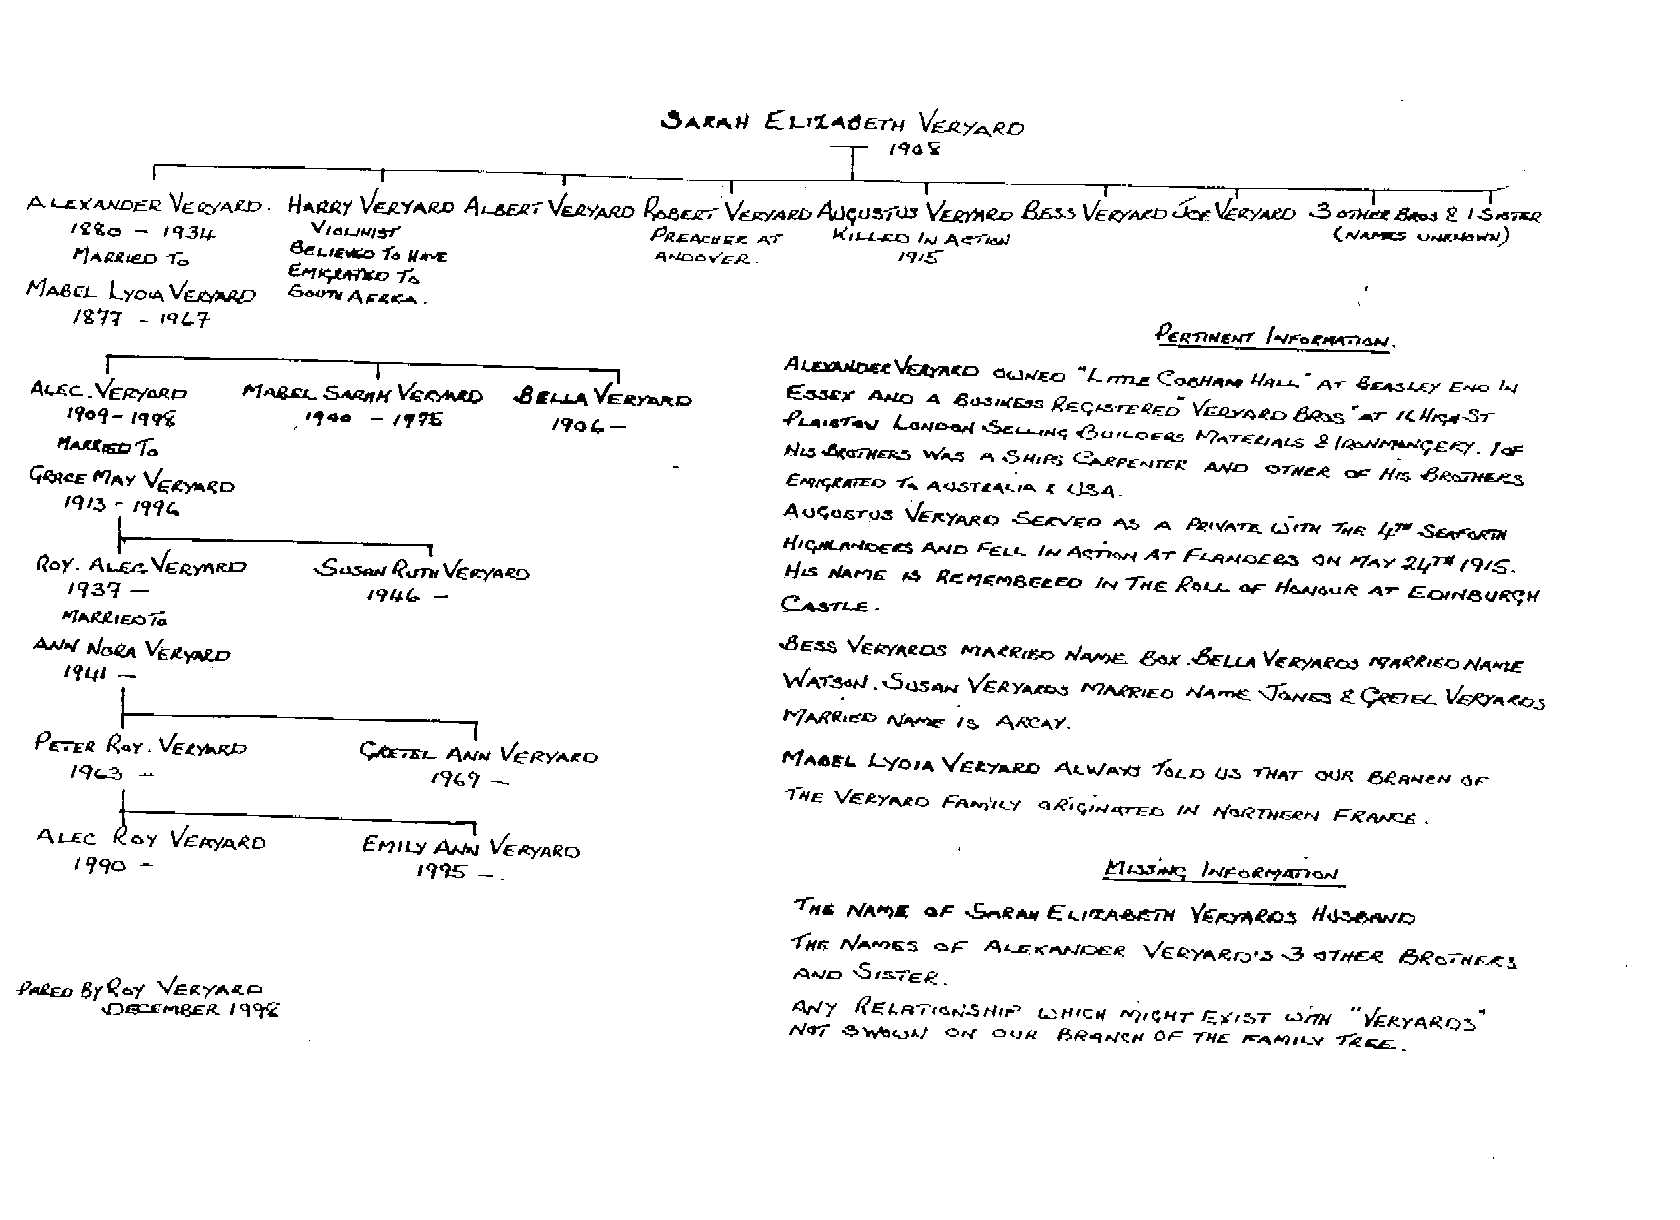 SARAH ELIZABETH VERYARD
1908
ALEXANDER VERYARD. HARRY VERYARD ALBERT VERYARD ROBERT VERYARD AUGUSTUS VERYARD BESS VERYARD JOE VERYARD 3 OTHER BROS & 1 SISTER
1880 - 1934 VIOLINIST PREACHER AT KILLED IN ACTION (NAMES UNKNOWN)
MARRIED TO BELIEVED TO HAVE ANDOVER. 1915
EMIGRATED TO
MABEL LYDIA VERYARD SOUTH AFRICA.
1877 - 1967
ALEC. VERYARD MABEL SARAH VERYARD BELLA VERYARD
1909 - 1998 1900 - 1975 1906 -
MARRIED TO
GRACE MAY VERYARD
1913 - 1996
ROY. ALEC. VERYARD SUSAN RUTH VERYARD
1937 - 1946 -
MARRIED TO
ANN NORA VERYARD
1941 -
PETER ROY. VERYARD GRETEL ANN VERYARD
1963 - 1969 -
ALEC ROY VERYARD EMILY ANN VERYARD
1990 - 1995 -.
PARED BY ROY VERYARD
DECEMBER 1998
PERTINENT INFORMATION.
ALEXANDER VERYARD OWNED "LITTLE COBHAM HALL" AT BEASLEY END IN
ESSEX AND A BUSINESS REGISTERED "VERYARD BROS" AT 16 HIGH ST
PLAISTOW LONDON SELLING BUILDERS MATERIALS & IRONMANGERY. 1 OF
HIS BROTHERS WAS A SHIPS CARPENTER AND OTHER OF HIS BROTHERS
EMIGRATED TO AUSTRALIA & USA.
AUGUSTUS VERYARD SERVED AS A PRIVATE WITH THE 4TH SEAFORTH
HIGHLANDERS AND FELL IN ACTION AT FLANDERS ON MAY 24TH 1915.
HIS NAME IS REMEMBERED IN THE ROLL OF HONOUR AT EDINBURGH
CASTLE.
BESS VERYARDS MARRIED NAME BOX. BELLA VERYARDS MARRIED NAME
WATSON. SUSAN VERYARDS MARRIED NAME JONES & GRETEL VERYARDS
MARRIED NAME IS ARCAY.
MABEL LYDIA VERYARD ALWAYS TOLD US THAT OUR BRANCH OF
THE VERYARD FAMILY ORIGINATED IN NORTHERN FRANCE.
MISSING INFORMATION
THE NAME OF SARAH ELIZABETH VERYARDS HUSBAND
THE NAMES OF ALEXANDER VERYARD'S 3 OTHER BROTHERS
AND SISTER.
ANY RELATIONSHIP WHICH MIGHT EXIST WITH "VERYARDS"
NOT SHOWN ON OUR BRANCH OF THE FAMILY TREE.